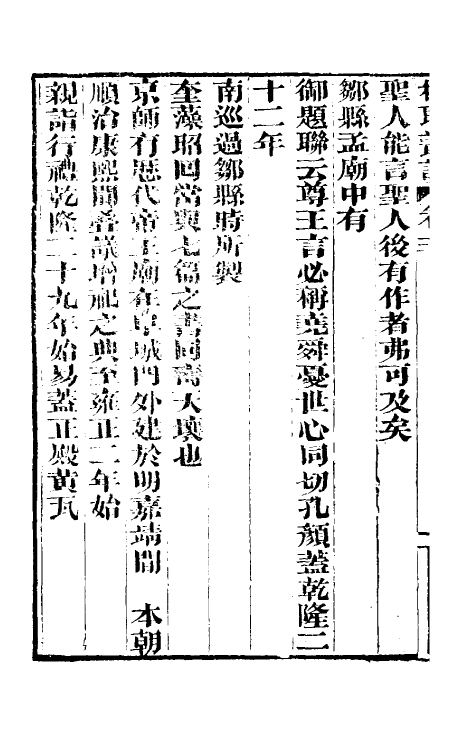 聖人能言聖人後有作者弗可及矣
鄒縣孟廟中有
御題聯云尊王言必稱堯舜憂世心同切孔顏蓋乾隆二
十二年
南巡過鄒縣時所製
奎藻昭回當與七篇之書同壽天壤也
京師有歷代帝王廟在阜城門外建於明嘉靖間 本朝
順治康熙間疊議增祀之典至雍正二年始
親詣行禮乾隆二十九年始易蓋正殿黃瓦